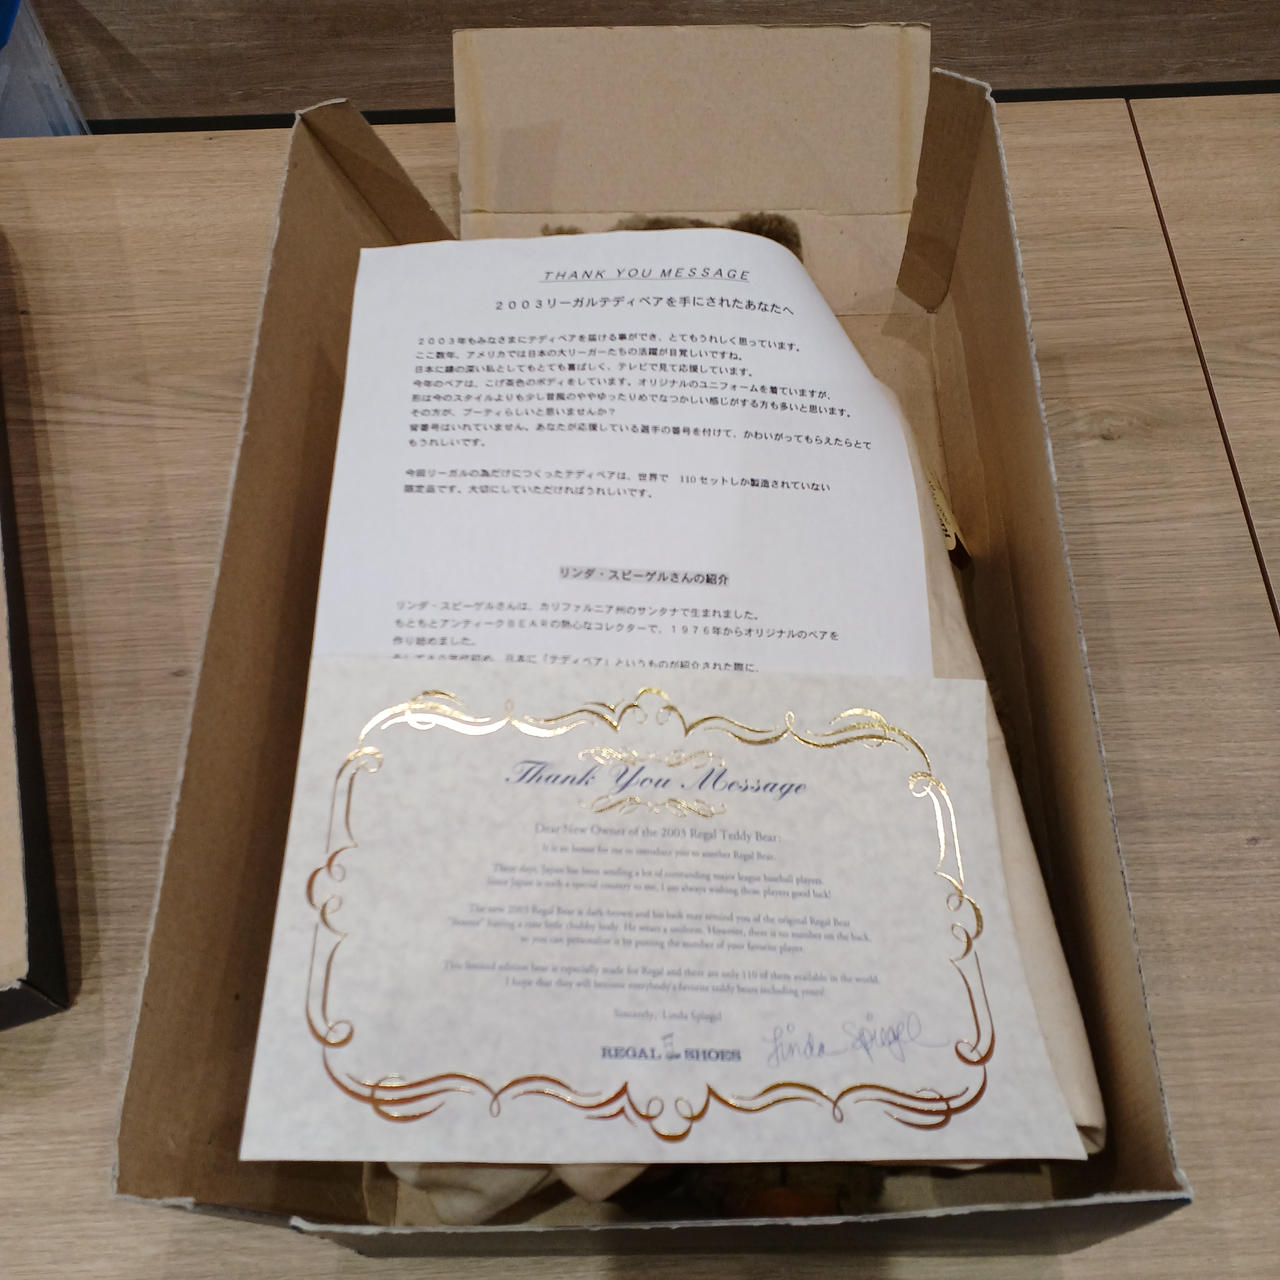 THANK YOU MESSAGE
2003リーガルテディベアを手にされたあなたへ
2003年もみなさまにテディベアを届ける事ができ、とてもうれしく思っています。
ここ数年、アメリカでは日本の大リーガーたちの活躍が目覚しいですね。
日本に縁の深い私としてもとても喜ばしく、テレビで見て応援しています。
今年のベアは、こげ茶色のボディをしています。オリジナルのユニフォームを着ていますが、
形は今のスタイルよりも少し昔風のややゆったりめでなつかしい感じがする方も多いと思います。
その方が、ブーティらしいと思いませんか？
背番号はいれていません。あなたが応援している選手の番号を付けて、かわいがってもらえたらとて
もうれしいです。
今回リーガルの為だけにつくったテディベアは、世界で 110セットしか製造されていない
限定品です。大切にしていただければうれしいです。
リンダ・スピーゲルさんの紹介
リンダ・スピーゲルさんは、カリファルニア州のサンタナで生まれました。
もともとアンティークBEARの熱心なコレクターで、1976年からオリジナルのベアを
作り始めました。
日本に「テディベア」というものが紹介された際に、
Thank You Message
Dear New Owner of the 2003 Regal Teddy Bear:
It is an honor for me to introduce you to another Regal Bear.
These days, Japan has been sending a lot of outstanding major league baseball players.
Since Japan is such a special country to me, I am always wishing those players good luck!
The new 2003 Regal Bear is dark-brown and his look may remind you of the original Regal Bear
having a cute little chubby body. He wears a uniform. However, there is no number on the back,
so you can personalize it by putting the number of your favorite player.
This limited edition bear is especially made for Regal and there are only 110 of them available in the world.
I hope that they will become everybody's favorite teddy bears including yours!
Sincerely, Linda Spiegel
REGAL SHOES
Linda Spiegel